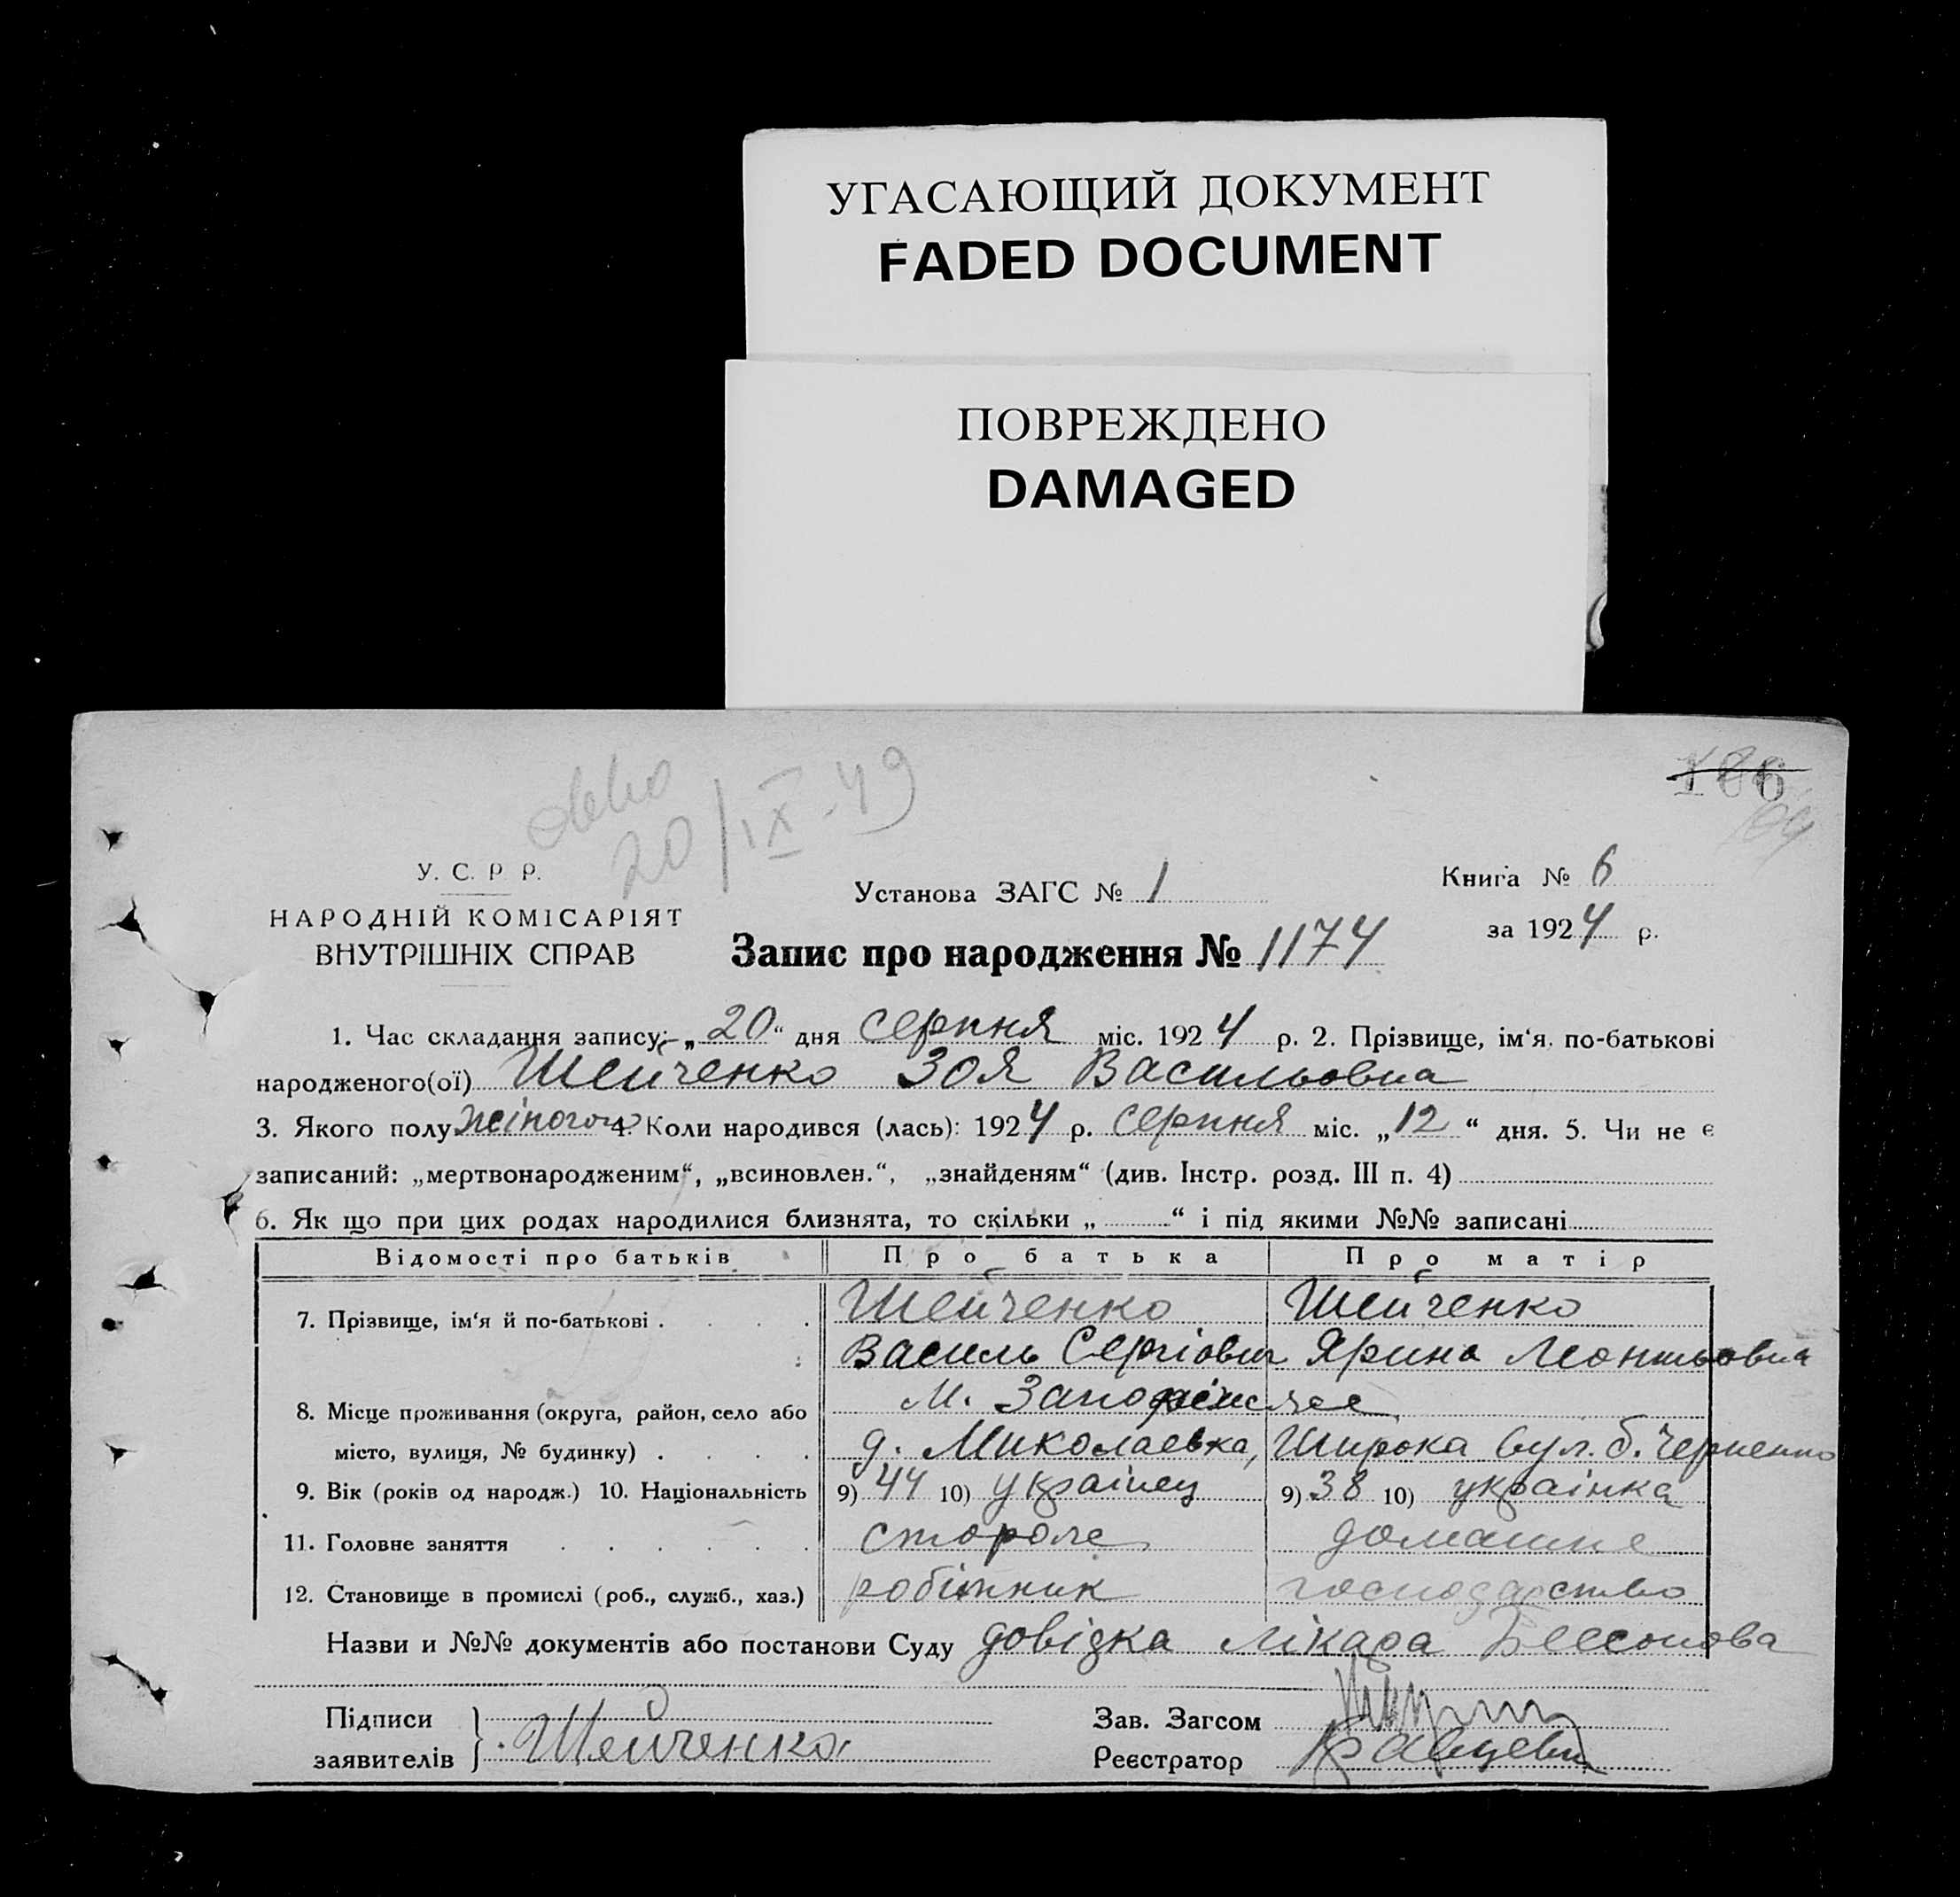 УГАСАЮЩИЙ ДОКУМЕНТ
FADED DOCUMENT
ПОВРЕЖДЕНО
DAMAGED
20/IX-49
166
У. С. Р. Р.
НАРОДНІЙ КОМІСАРІЯТ
ВНУТРІШНІХ СПРАВ
Установа ЗАГС № 1
Книга № 6
за 1924 р.
Запис про народження № 1174
1. Час складання запису: „20“ дня серпня міс. 1924 р. 2. Прізвище, ім‘я. по-батькові
народженого(ої) Шейченко Зоя Васильовна
3. Якого полу жіночого 4. Коли народився (лась): 1924 р. серпня міс. „12“ дня. 5. Чи не є
записаний: „мертвонародженим“, „всиновлен.“, „знайденям“ (див. Інстр. розд. III п. 4)
6. Як що при цих родах народилися близнята, то скільки „ “ і під якими №№ записані
Відомості про батьків Про батька Про матір
7. Прізвище, ім‘я й по-батькові . . . . Шейченко Шейченко
Василь Сергіович Ярина
8. Місце проживання (округа, район, село або м. Запоріжжє
місто, вулиця, № будинку) . . . . д. Миколаевка, Широка вул. б. Черненко
9. Вік (років од народж.) 10. Національність 9) 44 10) українец 9) 38 10) українка
11. Головне заняття . . . . . . сторож домашнє
12. Становище в промислі (роб., служб., хаз.) робітник господарство
Назви и №№ документів або постанови Суду довідка лікара Бессонова
Підписи
заявителів } Шейченко
Зав. Загсом
Реєстратор